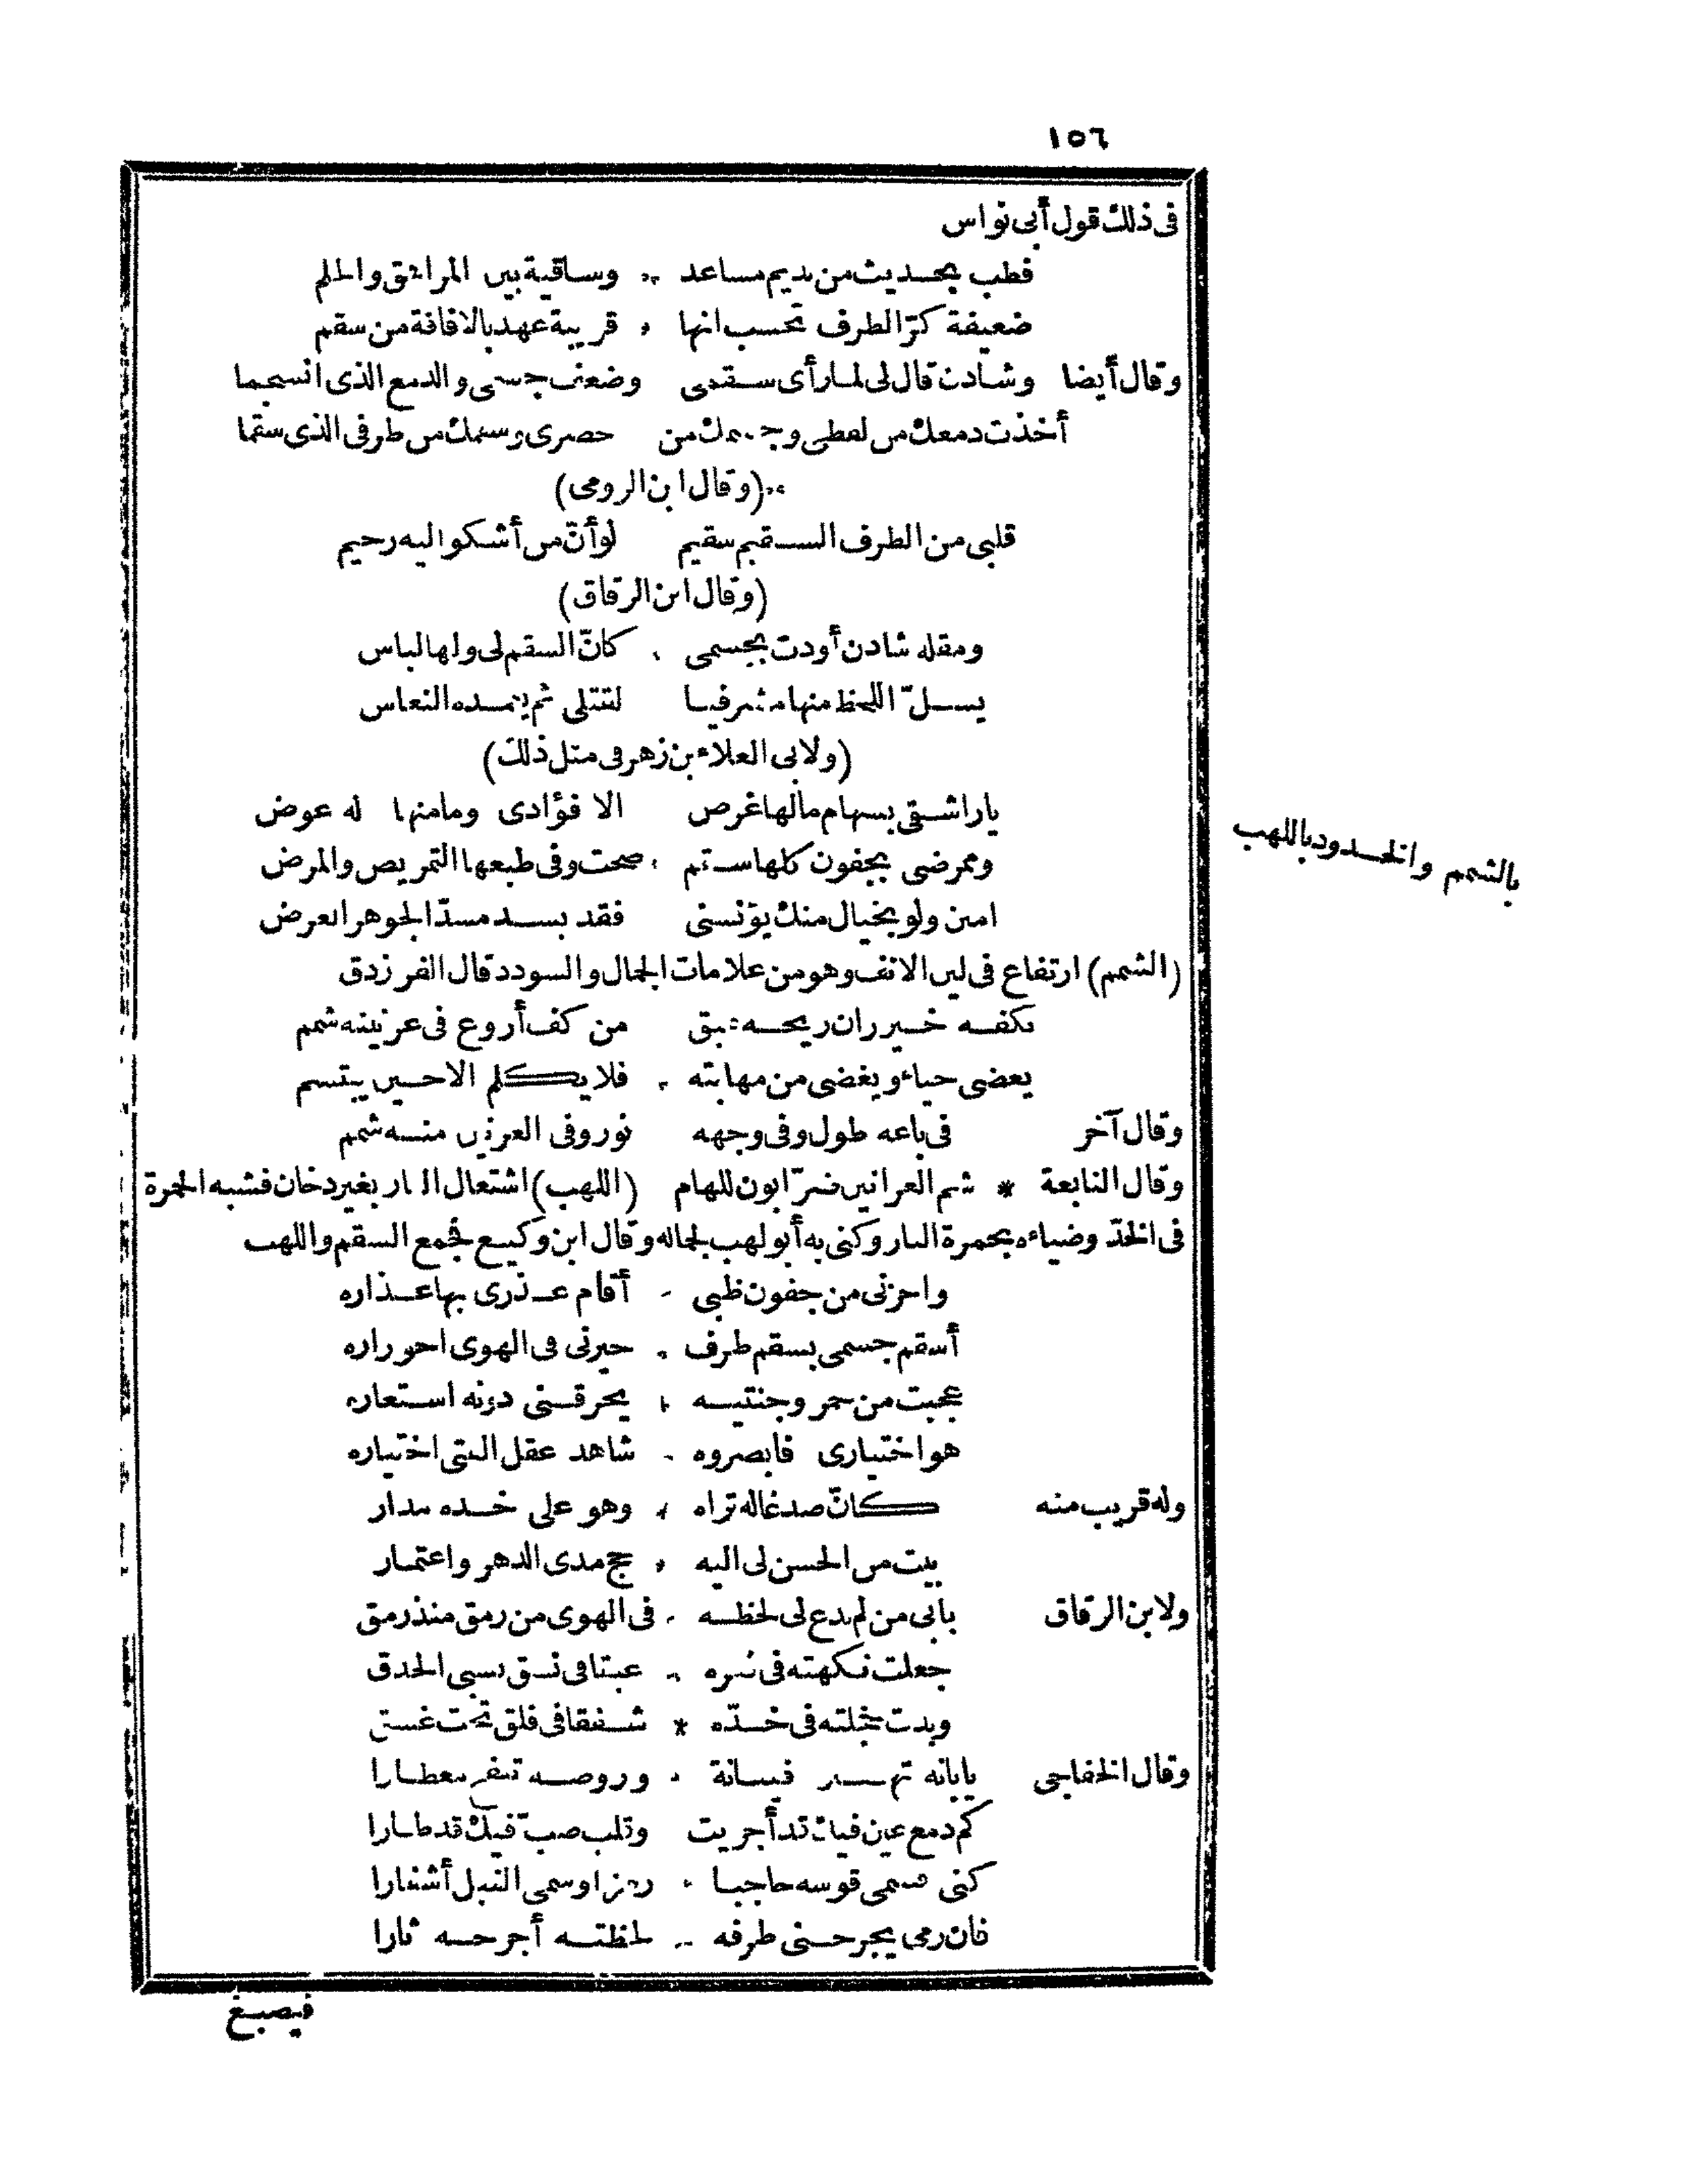 ١٥٦
فى ذلك قول أبى نواس
فطب بحديث من نديم مساعد * وساقية بين المراهق والحلم
ضعيفة كرّ الطرف تحسب انها * قريبة عهد بالافاقة من سقم
وقال أيضا وشادن قال لى لما رأى سقمى وضعف جسمى والدمع الذى انسجما
أخذت دمعك من لفظى وجسمك من خصرى وسقمك من طرفى الذى سقما
(وقال ابن الرومى)
قلبى من الطرف السقيم سقيم لو أنّ من أشكو اليه رحيم
(وقال ابن الزقاق)
ومقلة شادن أودت بجسمى * كانّ السقم لى ولها لباس
يسلّ اللحظ منها مشرفيا لقتلى ثم يغمده النعاس
(ولابى العلاء بن زهر فى مثل ذلك)
ياراشقى بسهام مالها غرض الا فؤادى ومامنها له عوض
وممرضى بجفون كلها سقم * صحت وفى طبعها التمريض والمرض
امنن ولو بخيال منك يؤنسنى فقد يسد مسدّ الجوهر العرض
(الشمم) ارتفاع فى لين الانف وهو من علامات الجمال والسودد قال الفرزدق
بكفه خيزران ريحه عبق من كف أروع فى عرنينه شمم
يغضى حياء ويغضى من مهابته * فلا يكلم الا حين يبتسم
وقال آخر فى باعه طول وفى وجهه نور وفى العرنين منه شمم
وقال النابغة * شم العرانين ضرّابون للهام (اللهب) اشتعال النار بغير دخان فشبه الحمرة
فى الخدّ وضياءه بحمرة النار وكنى به أبو لهب لجماله وقال ابن وكيع فجمع السقم واللهب
واحزنى من جفون ظبى * أقام عذرى بها عذاره
أسقم جسمى بسقم طرف * حيرنى فى الهوى احوراره
عجبت من جمر وجنتيه * يحرقنى دونه استعاره
هو اختيارى فابصروه * شاهد عقل الفتى اختياره
وله قريب منه كانّ صدغا له تراه * وهو على خده مدار
بيت من الحسن لى اليه * حج مدى الدهر واعتمار
ولابن الزقاق بابى من لم يدع لى لحظه * فى الهوى من رمق منذ رمق
جعلت نكهته فى ثغره * عبقا فى نسق يسبى الحدق
وبدت خجلته فى خدّه * شفقا فى فلق تحت غسق
وقال الخفاجى يابانة تهتز فينانة * وروضة تنفح معطارا
كم دمع عين فيك قد أجريت وقلب صبّ فيك قد طارا
كنى فسمى قوسه حاجبا * رمزا وسمى النبل أشفارا
فان رمى يجرحنى طرفه * لحظته أجرحه ثارا
فيصبغ
بالشمم والخدود باللهب